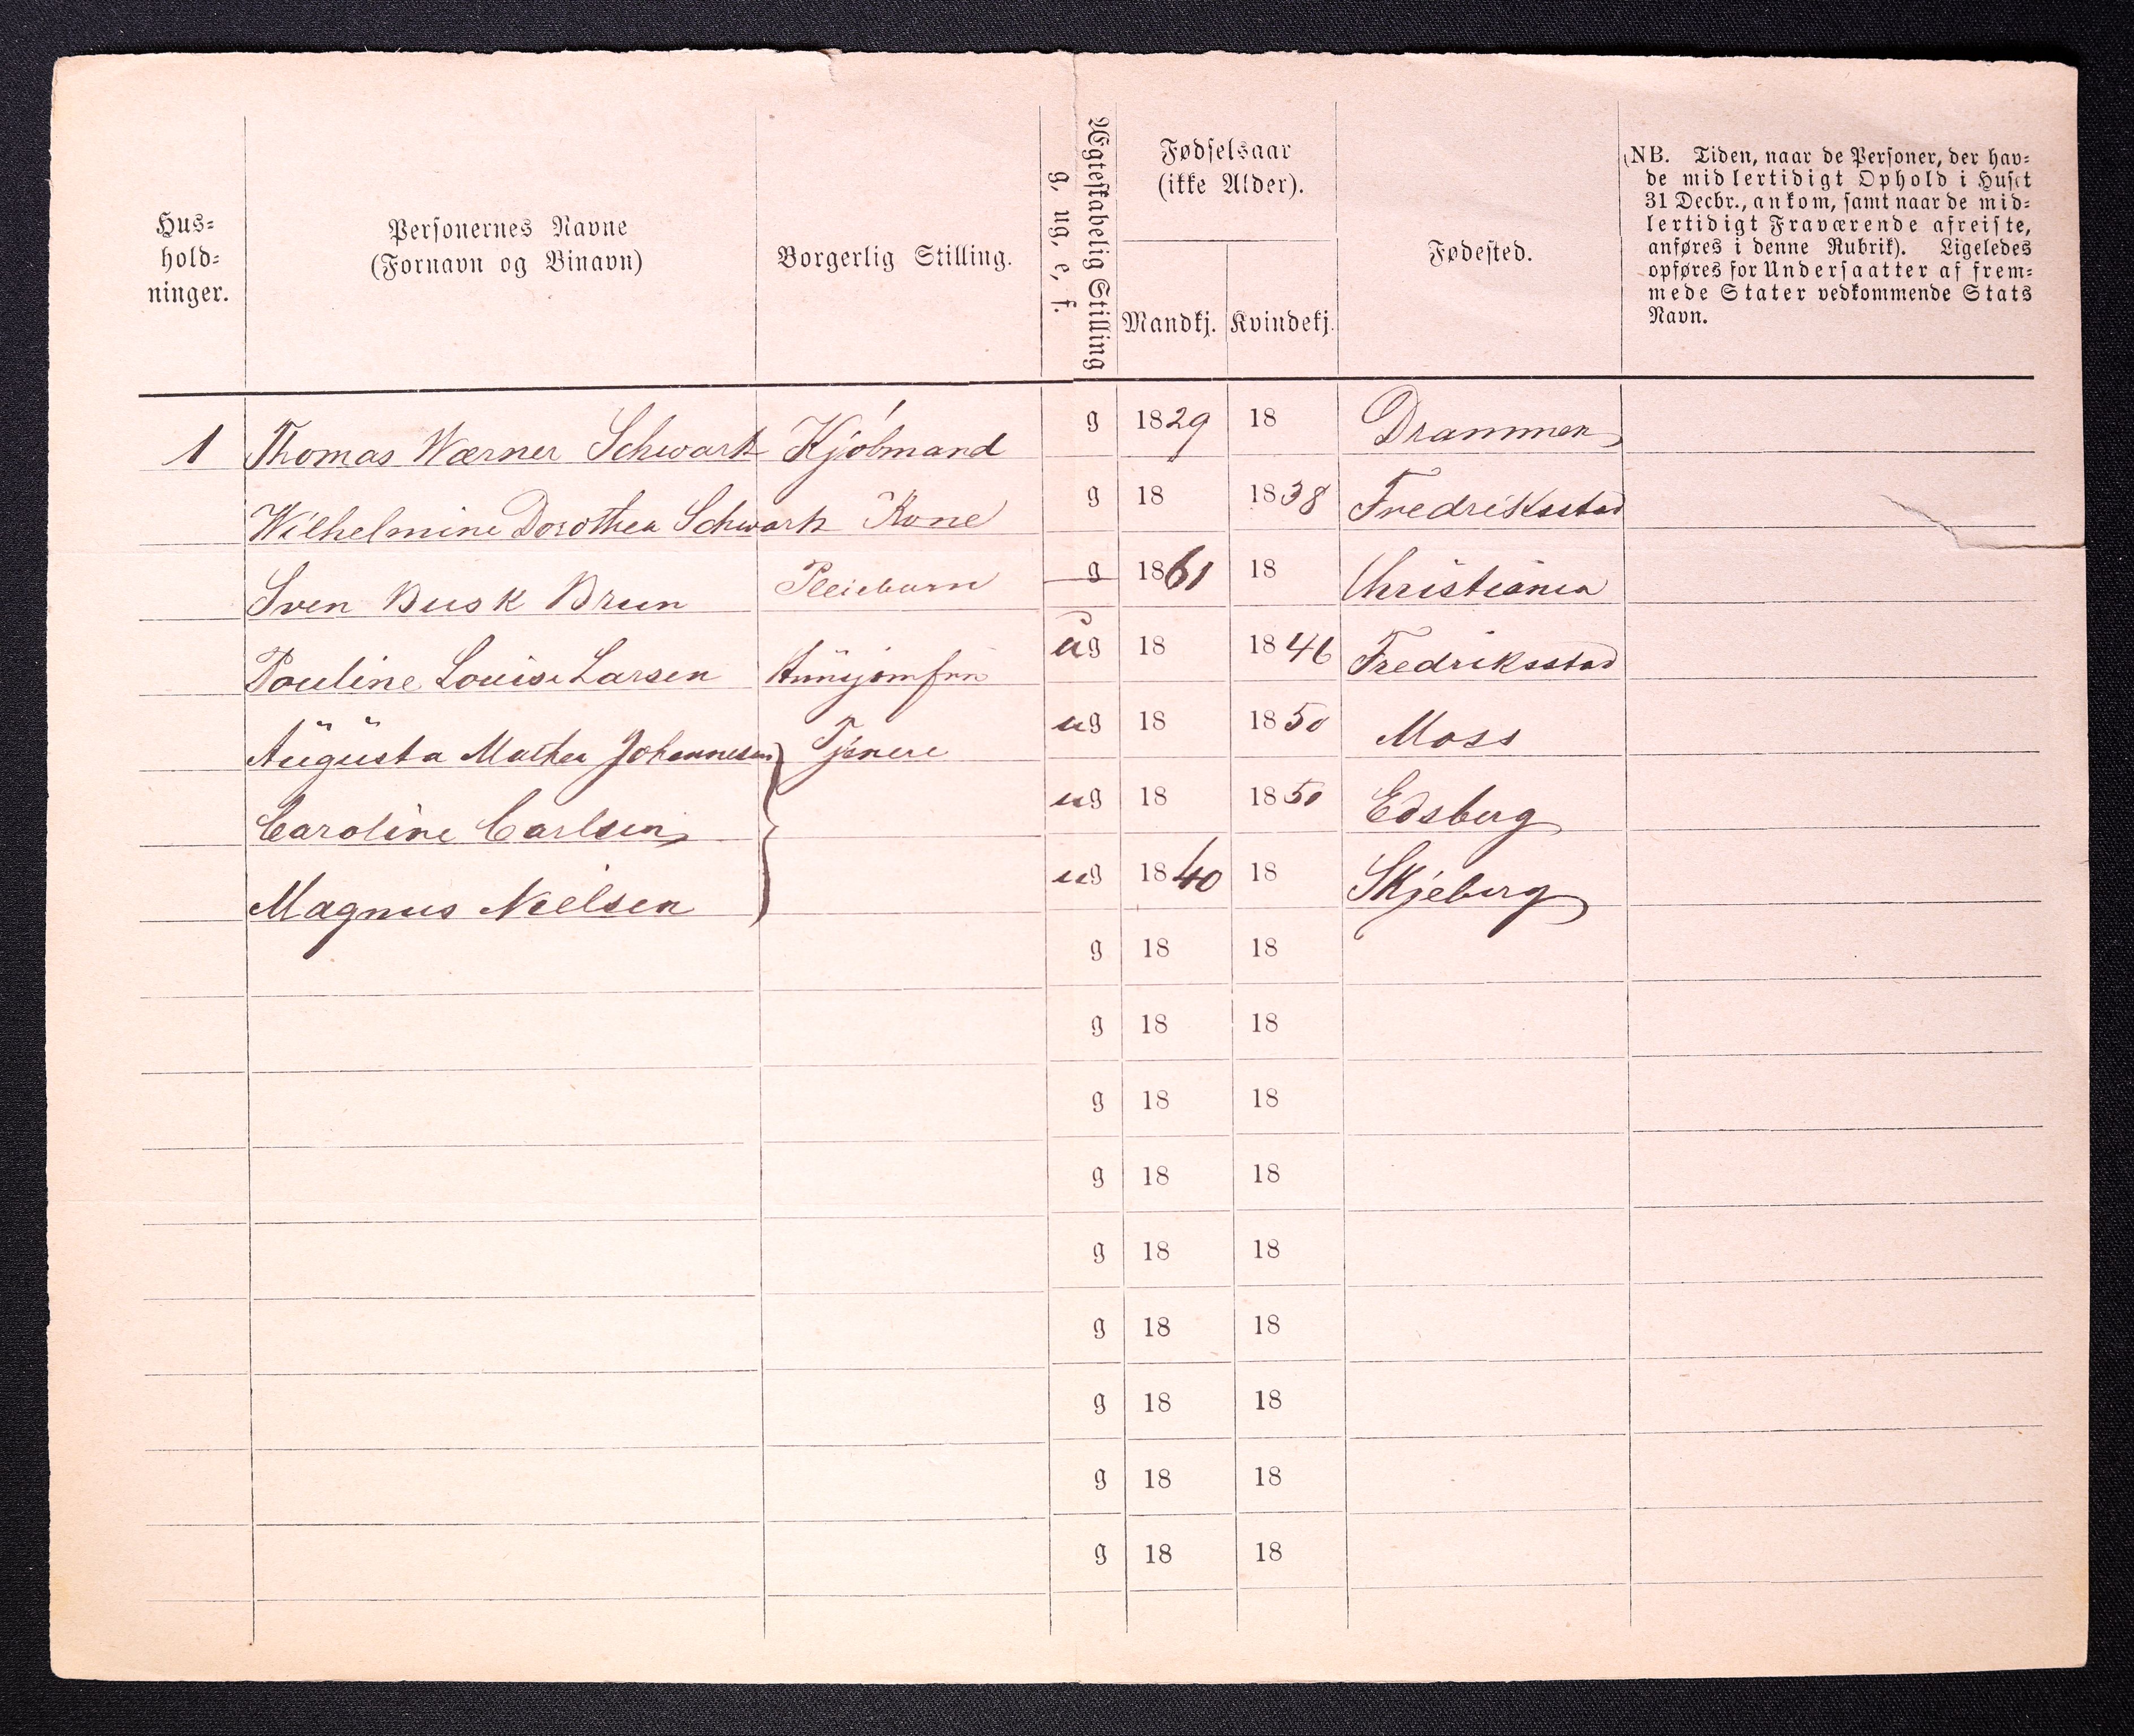 Hus-
hold-
ninger.
Personernes Navne
(Fornavn og Binavn)
Borgerlig Stilling.
Ægteskabelig Stilling
g, ug, e, f.
Fødselsaar
(ikke Alder).
Mandkj. Kvindekj.
Fødested.
(NB. Tiden, naar de Personer, der hav-
de midlertidigt Ophold i Huset
31 Decbr., ankom, samt naar de mid-
lertidigt Fraværende afreiste,
anføres i denne Rubrik). Ligeledes
opføres for Undersaatter af frem-
mede Stater vedkommende Stats
Navn.
1 Thomas Wærner Schwartz Kjöbmand g 1829 18 Drammen
Wilhelmine Dorothea Schwartz Kone g 18 1838 Fredriksstad
Sven Busk Brun Pleiebarn g 1861 18 Christiania
Pouline Louise Larsen Huusjomfru ug 18 1846 Fredriksstad
Augusta Mathea Johannesen Tjenere ug 18 1850 Moss
Caroline Carlsen ug 18 1850 Edsberg
Magnus Nielsen ug 1840 18 Skjeberg
g 18 18
g 18 18
g 18 18
g 18 18
g 18 18
g 18 18
g 18 18
g 18 18
g 18 18